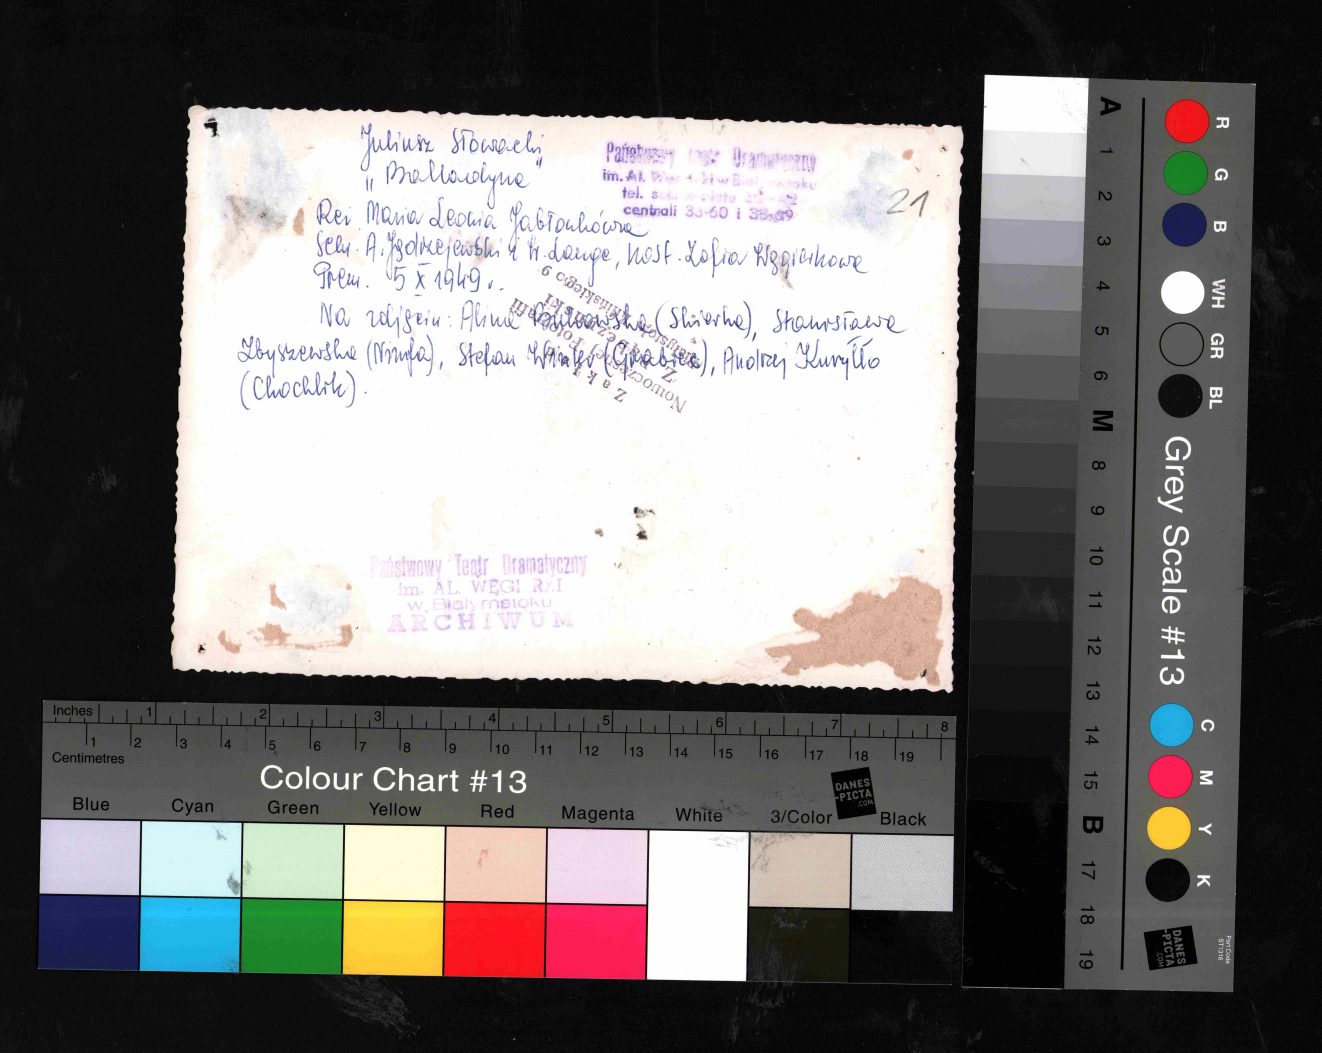 Juliusz Słowacki
„Balladyna"
21
Państwowy Teatr Dramatyczny
im. Al.
tel.
centrali 33-60 i
Reż. Maria Leonia Jabłonkówna
Scen. A. Jędrzejewski i W. Lange, kost. Zofia Węgierkowa
Prem. 5 X 1949 r.
Na zdjęciu: Alina (Skierka), Stanisława
Zbyszewska (Nimfa), Stefan Winter (Grabiec), Andrzej Kuryłło
(Chochlik).
Zakład
Nowoczesnej Fotografii
Państwowy Teatr Dramatyczny
im. AL. WĘGI RKI
w Białymstoku
ARCHIWUM
Inches 1 2 3 4 5 6 7 8
1 2 3 4 5 6 7 8 9 10 11 12 13 14 15 16 17 18 19
Centimetres
Colour Chart #13
DANES
-PICTA
.COM
Blue Cyan Green Yellow Red Magenta White 3/Color Black
A 1 2 3 4 5 6 M 8 9 10 11 12 13 14 15 B 17 18 19
R G B WH GR BL
Grey Scale #13
C M Y K
DANES
-PICTA
.COM
Part Code
ST1316